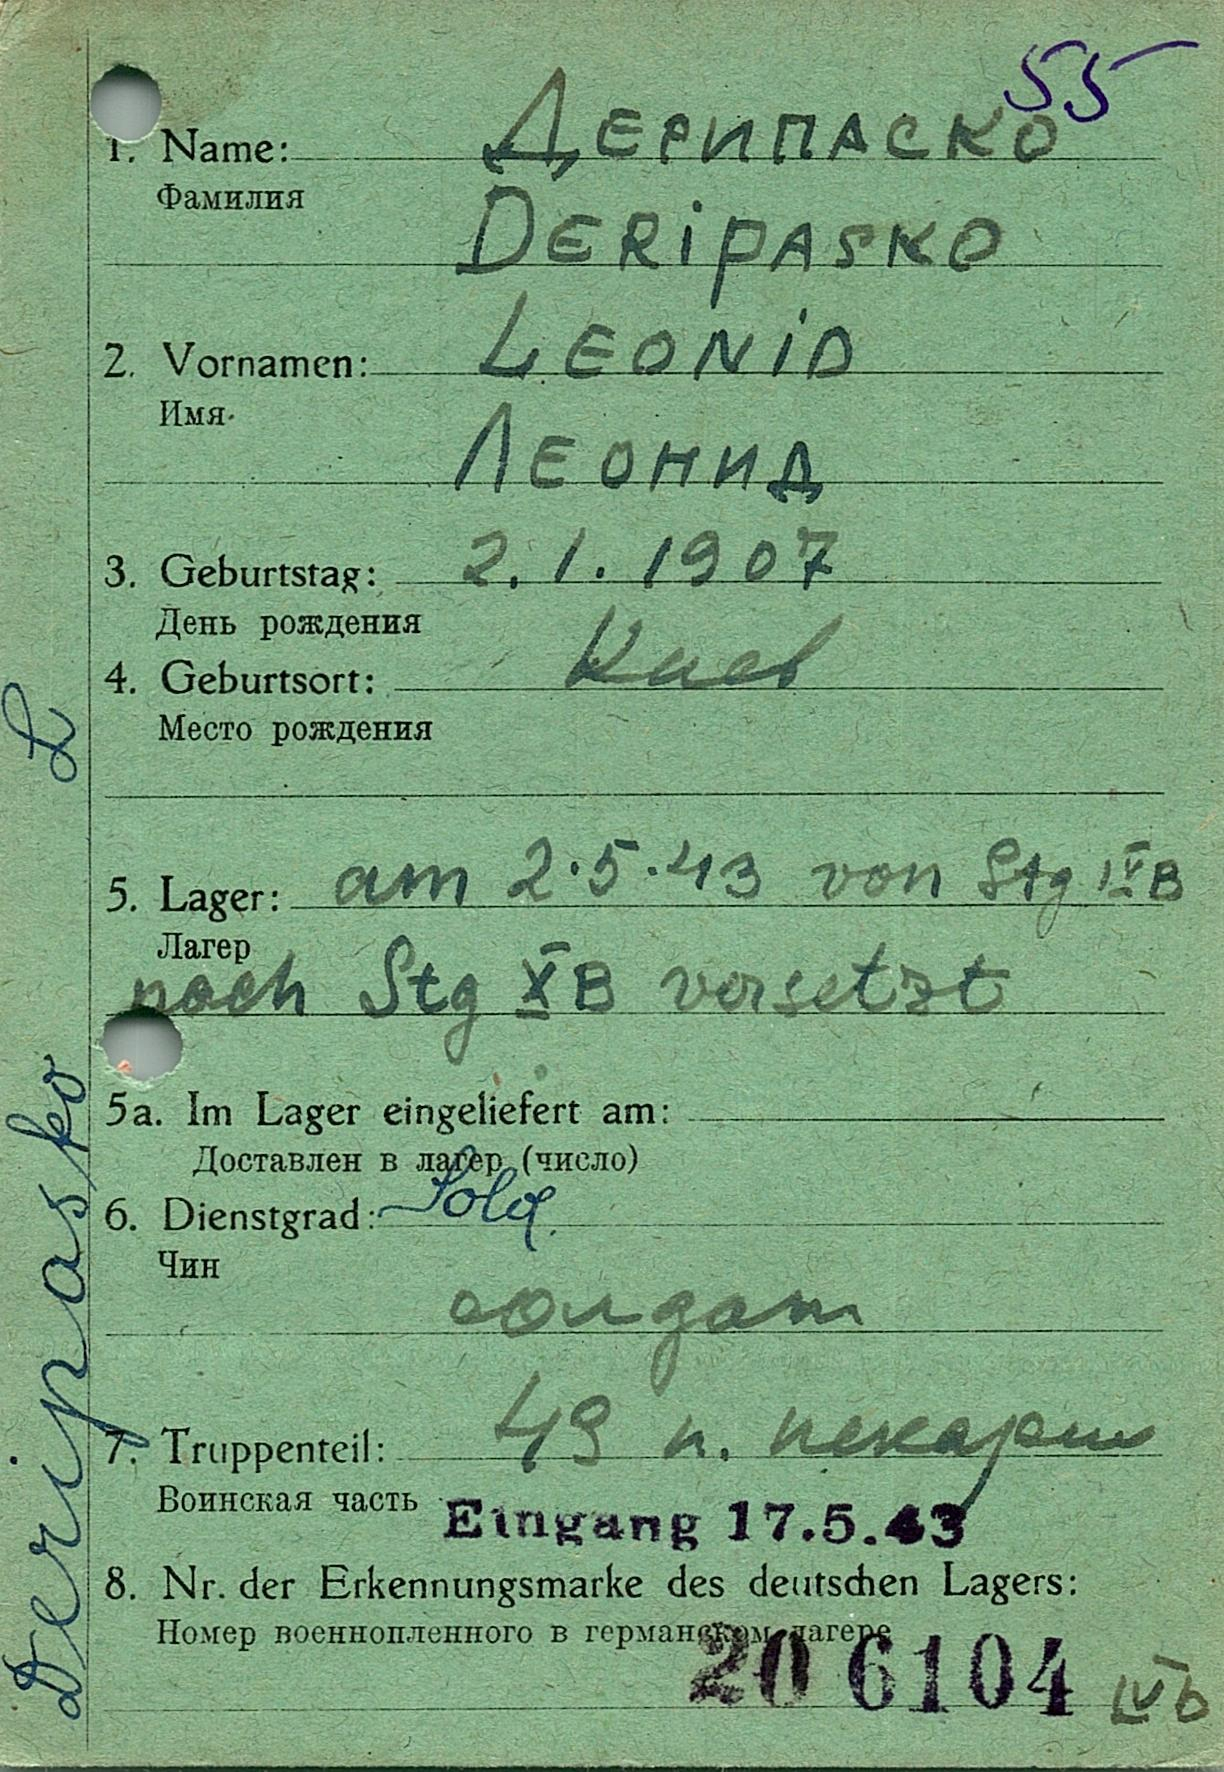 55
1. Name: ДЕРИПАСКО
Фамилия
DERiPASKO
2. Vornamen: LEONiD
Имя
ЛЕОНИД
3. Geburtstag: 2.1.1907
День рождения
4. Geburtsort: Киев
Место рождения
5. Lager: am 2.5.43 von Stg IVB
Лагер
nach Stg XB versetzt
5a. Im Lager eingeliefert am:
Доставлен в лагер (число)
6. Dienstgrad: Sold.
Чин
солдат
7. Truppenteil: 49 п. пекарни
Воинская часть
Eingang 17.5.43
8. Nr. der Erkennungsmarke des deutschen Lagers:
Номер военнопленного в германском лагере
206104 IVb
Deripasko L